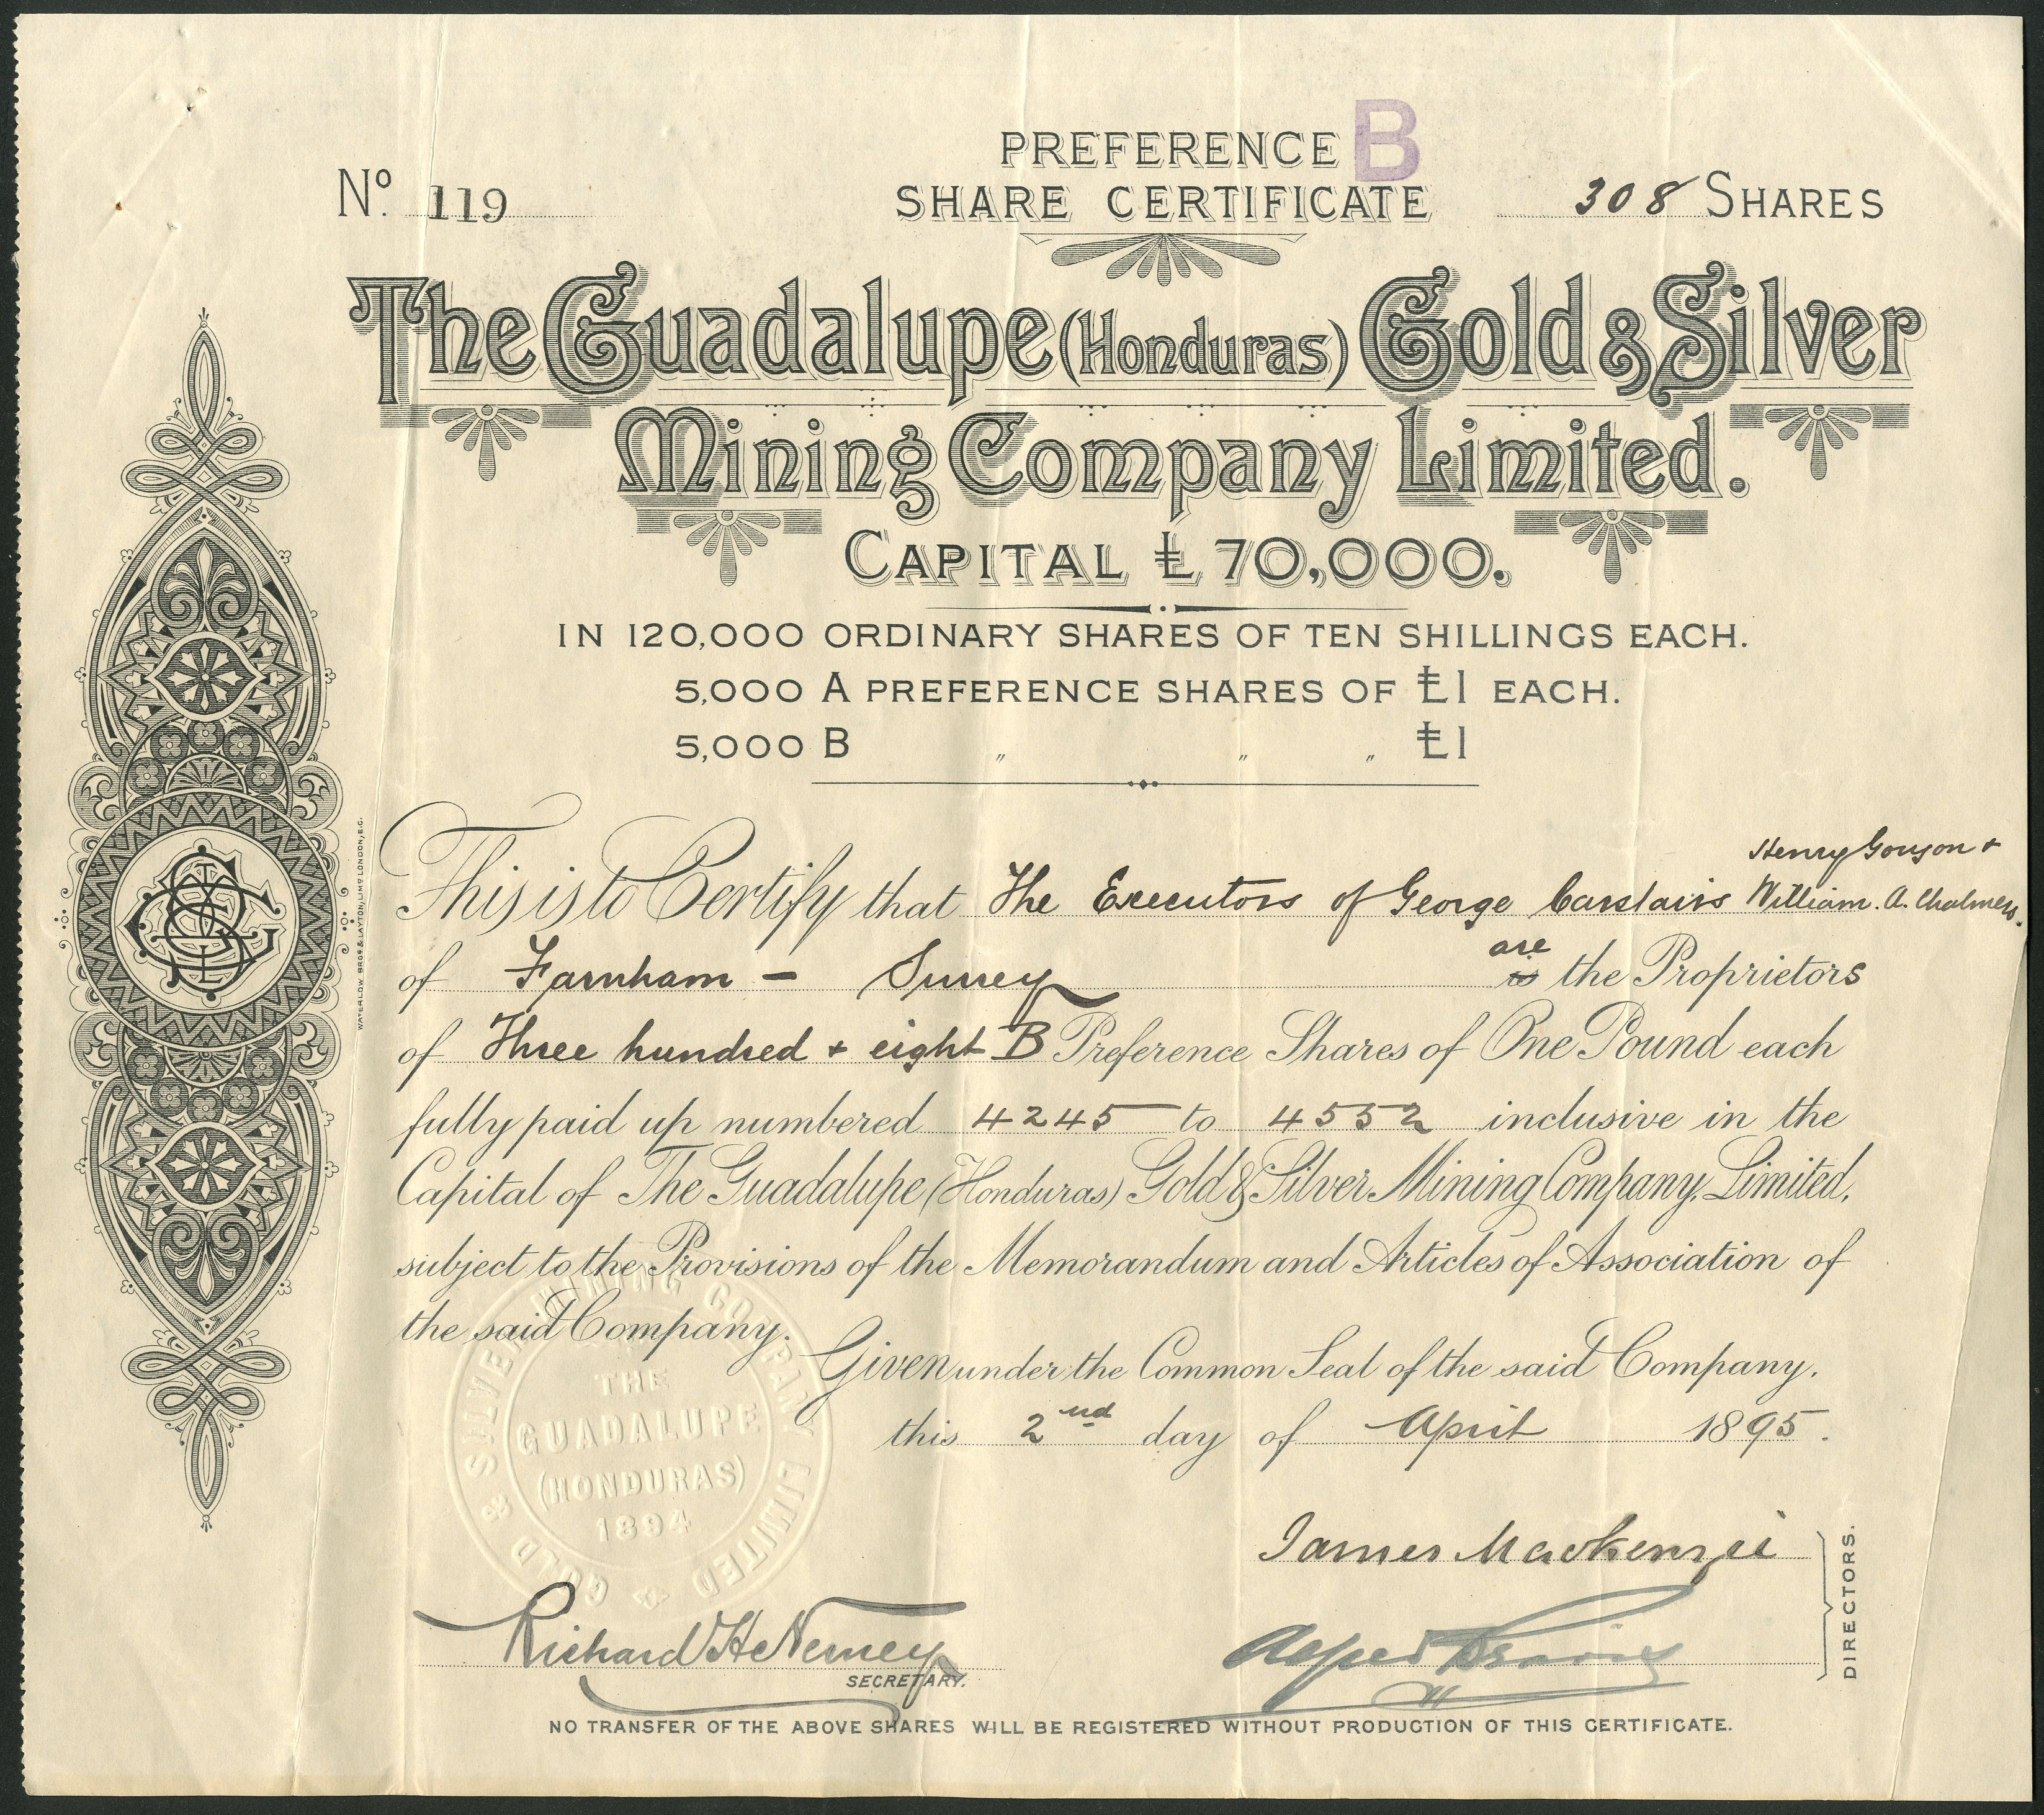 PREFERENCE B
No. 119 SHARE CERTIFICATE 308 SHARES
The Guadalupe (Honduras) Gold & Silver
Mining Company Limited.
CAPITAL £70,000.
IN 120,000 ORDINARY SHARES OF TEN SHILLINGS EACH.
5,000 A PREFERENCE SHARES OF £1 EACH.
5,000 B " " " £1
WATERLOW BROS & LAYTON, LIMD LONDON, E.C.
Henry &
This is to Certify that The Executors of George Carstairs William. A. Chalmers.
of Farnham - Surrey is are the Proprietors
of Three hundred + eight B Preference Shares of One Pound each
fully paid up numbered 4245 to 4552 inclusive in the
Capital of The Guadalupe (Honduras) Gold & Silver Mining Company, Limited,
subject to the Provisions of the Memorandum and Articles of Association of
the said Company.
Given under the Common Seal of the said Company.
this 2nd day of April 1895.
GOLD & SILVER MINING COMPANY LIMITED
THE
GUADALUPE
(HONDURAS)
1894
James Mackenzie
Richard H
SECRETARY.
Alfred
DIRECTORS.
NO TRANSFER OF THE ABOVE SHARES WILL BE REGISTERED WITHOUT PRODUCTION OF THIS CERTIFICATE.